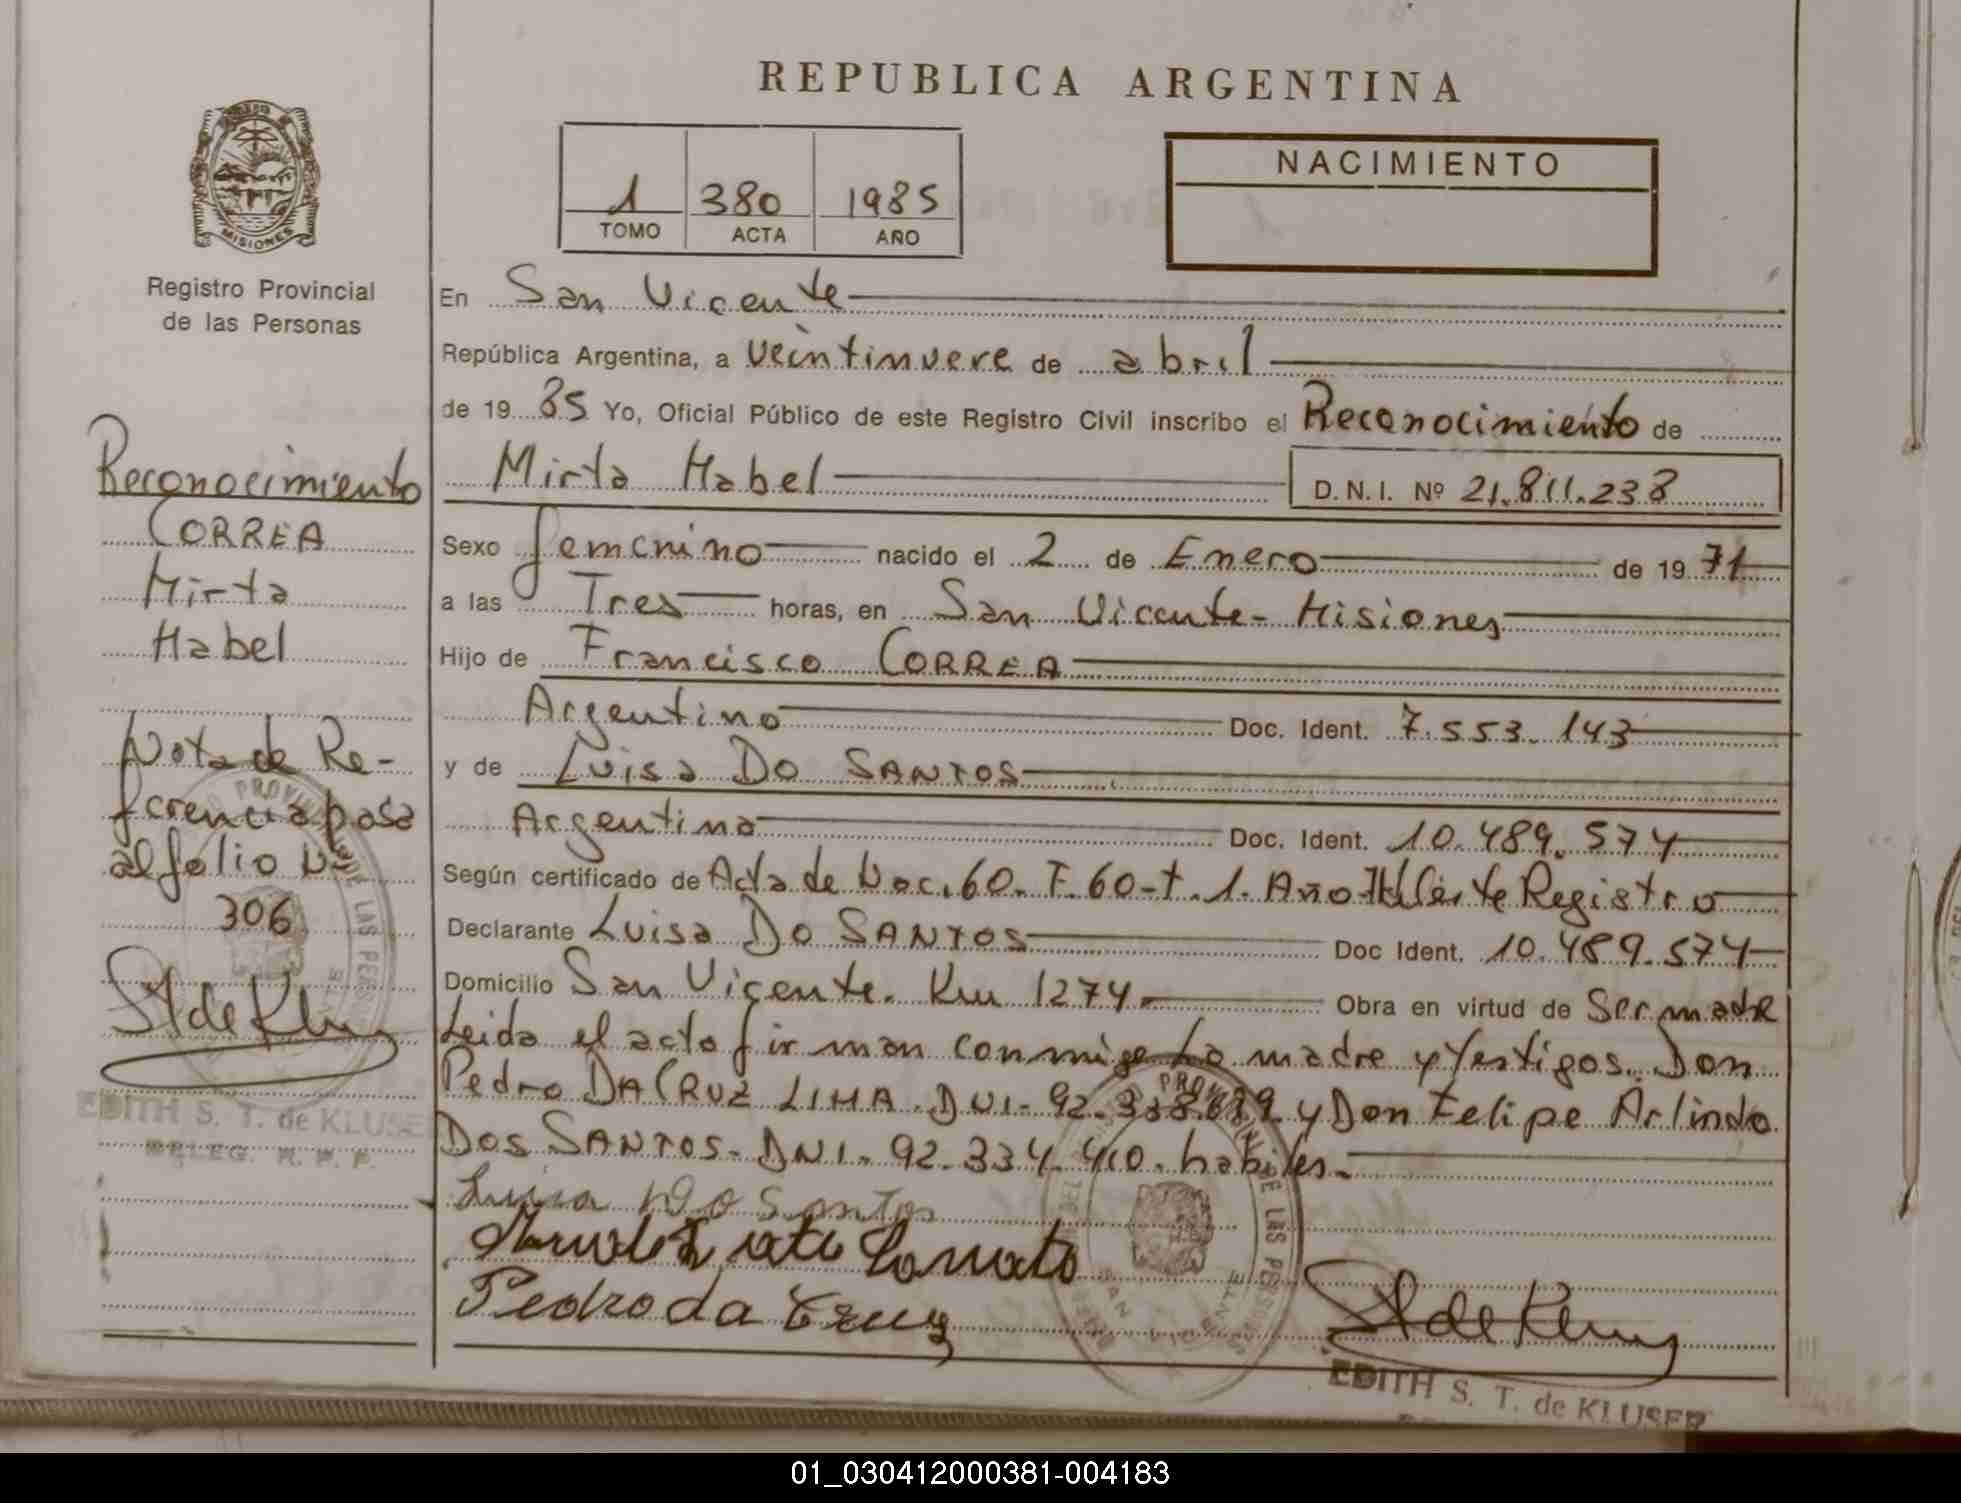 REPUBLICA ARGENTINA
1 380 1985
TOMO ACTA AÑO
NACIMIENTO
MISIONES
Registro Provincial
de las Personas
En San Vicente
República Argentina, a veintinueve de abril
de 19 85 Yo, Oficial Público de este Registro Civil inscribo el Reconocimiento de
Mirta Mabel D.N.I. Nº 21.811.238
Sexo femenino nacido el 2 de Enero de 19 71
a las Tres horas, en San Vicente - Misiones
Hijo de Francisco CORREA
Argentino Doc. Ident. 7.553.143
y de Luisa DO SANTOS
Argentina Doc. Ident. 10.489.574
Según certificado de Acta de Nac. 60. F. 60 - t. 1. Año Registro
Declarante Luisa DO SANTOS Doc Ident. 10.489.574
Domicilio San Vicente. Km 1274 Obra en virtud de Ser madre
Leida el acta firman conmigo La madre y testigos. Don
Pedro DA CRUZ LIMA. DNI. 92. y Don Felipe Arlindo
DOS SANTOS. DNI. 92.334.410. habiles.
Luisa DO Santos
Pedro da Cruz
EDITH S. T. de KLUSER
Reconocimiento
CORREA
Mirta
Mabel
Nota de Re-
ferencia pasa
al folio Nº
306
EDITH S. T. de KLUSER
DELEG. R. P. P.
01_030412000381-004183